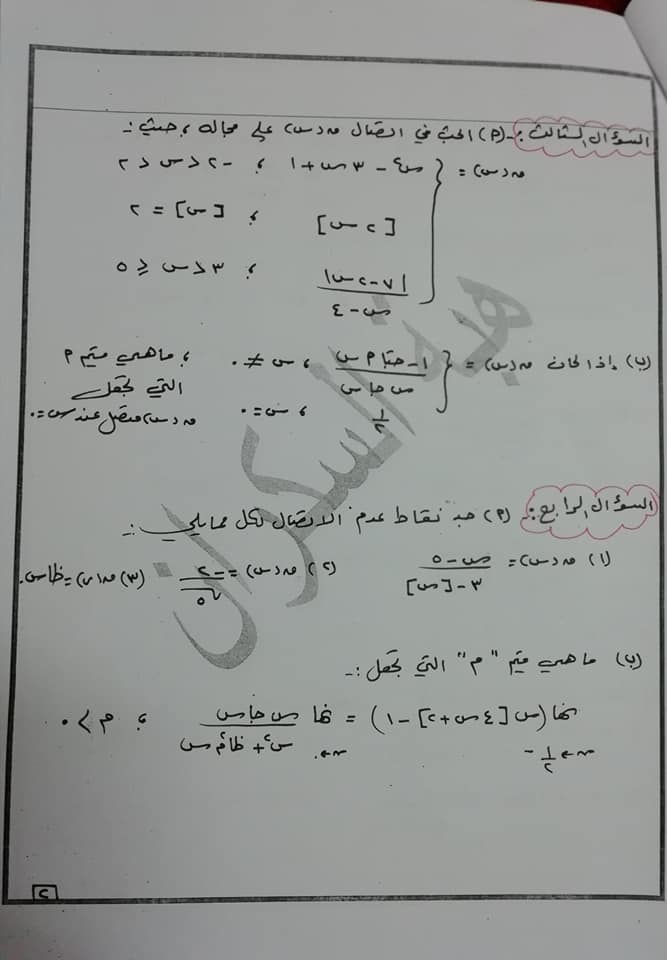 السؤال الثالث :- (م) ابحث في اتصال مہ(س) على مجاله ، حيث :-
مہ(س) = { س٤ - ٣س + ١ ، -٢ < س < ٢
[٢س] ، [س] = ٢
|٧ - ٢س| / س - ٤ ، ٣ < س ≤ ٥
(ب) إذا كان مہ(س) = { ١ - جتا م س / س جا س ، س ≠ ٠ ، ما هي قيم م
١/٢ ، س = ٠ التي تجعل
مہ(س) متصل عند س = ٠
السؤال الرابع :- (م) جد نقاط عدم الاتصال لكل مما يلي :-
(١) مہ(س) = س - ٥ / ٣ - [س] (٢) مہ(س) = -٢ / (٣) مہ(س) = ظاس .
(ب) ما هي قيم "م" التي تجعل :-
نها (س[٤س + ٢] - ١) = نها س جا س / س٢ + ظا٢ م س ، م > ٠
س ← ١/٢ - س ← ٠
هبة السكران
٢